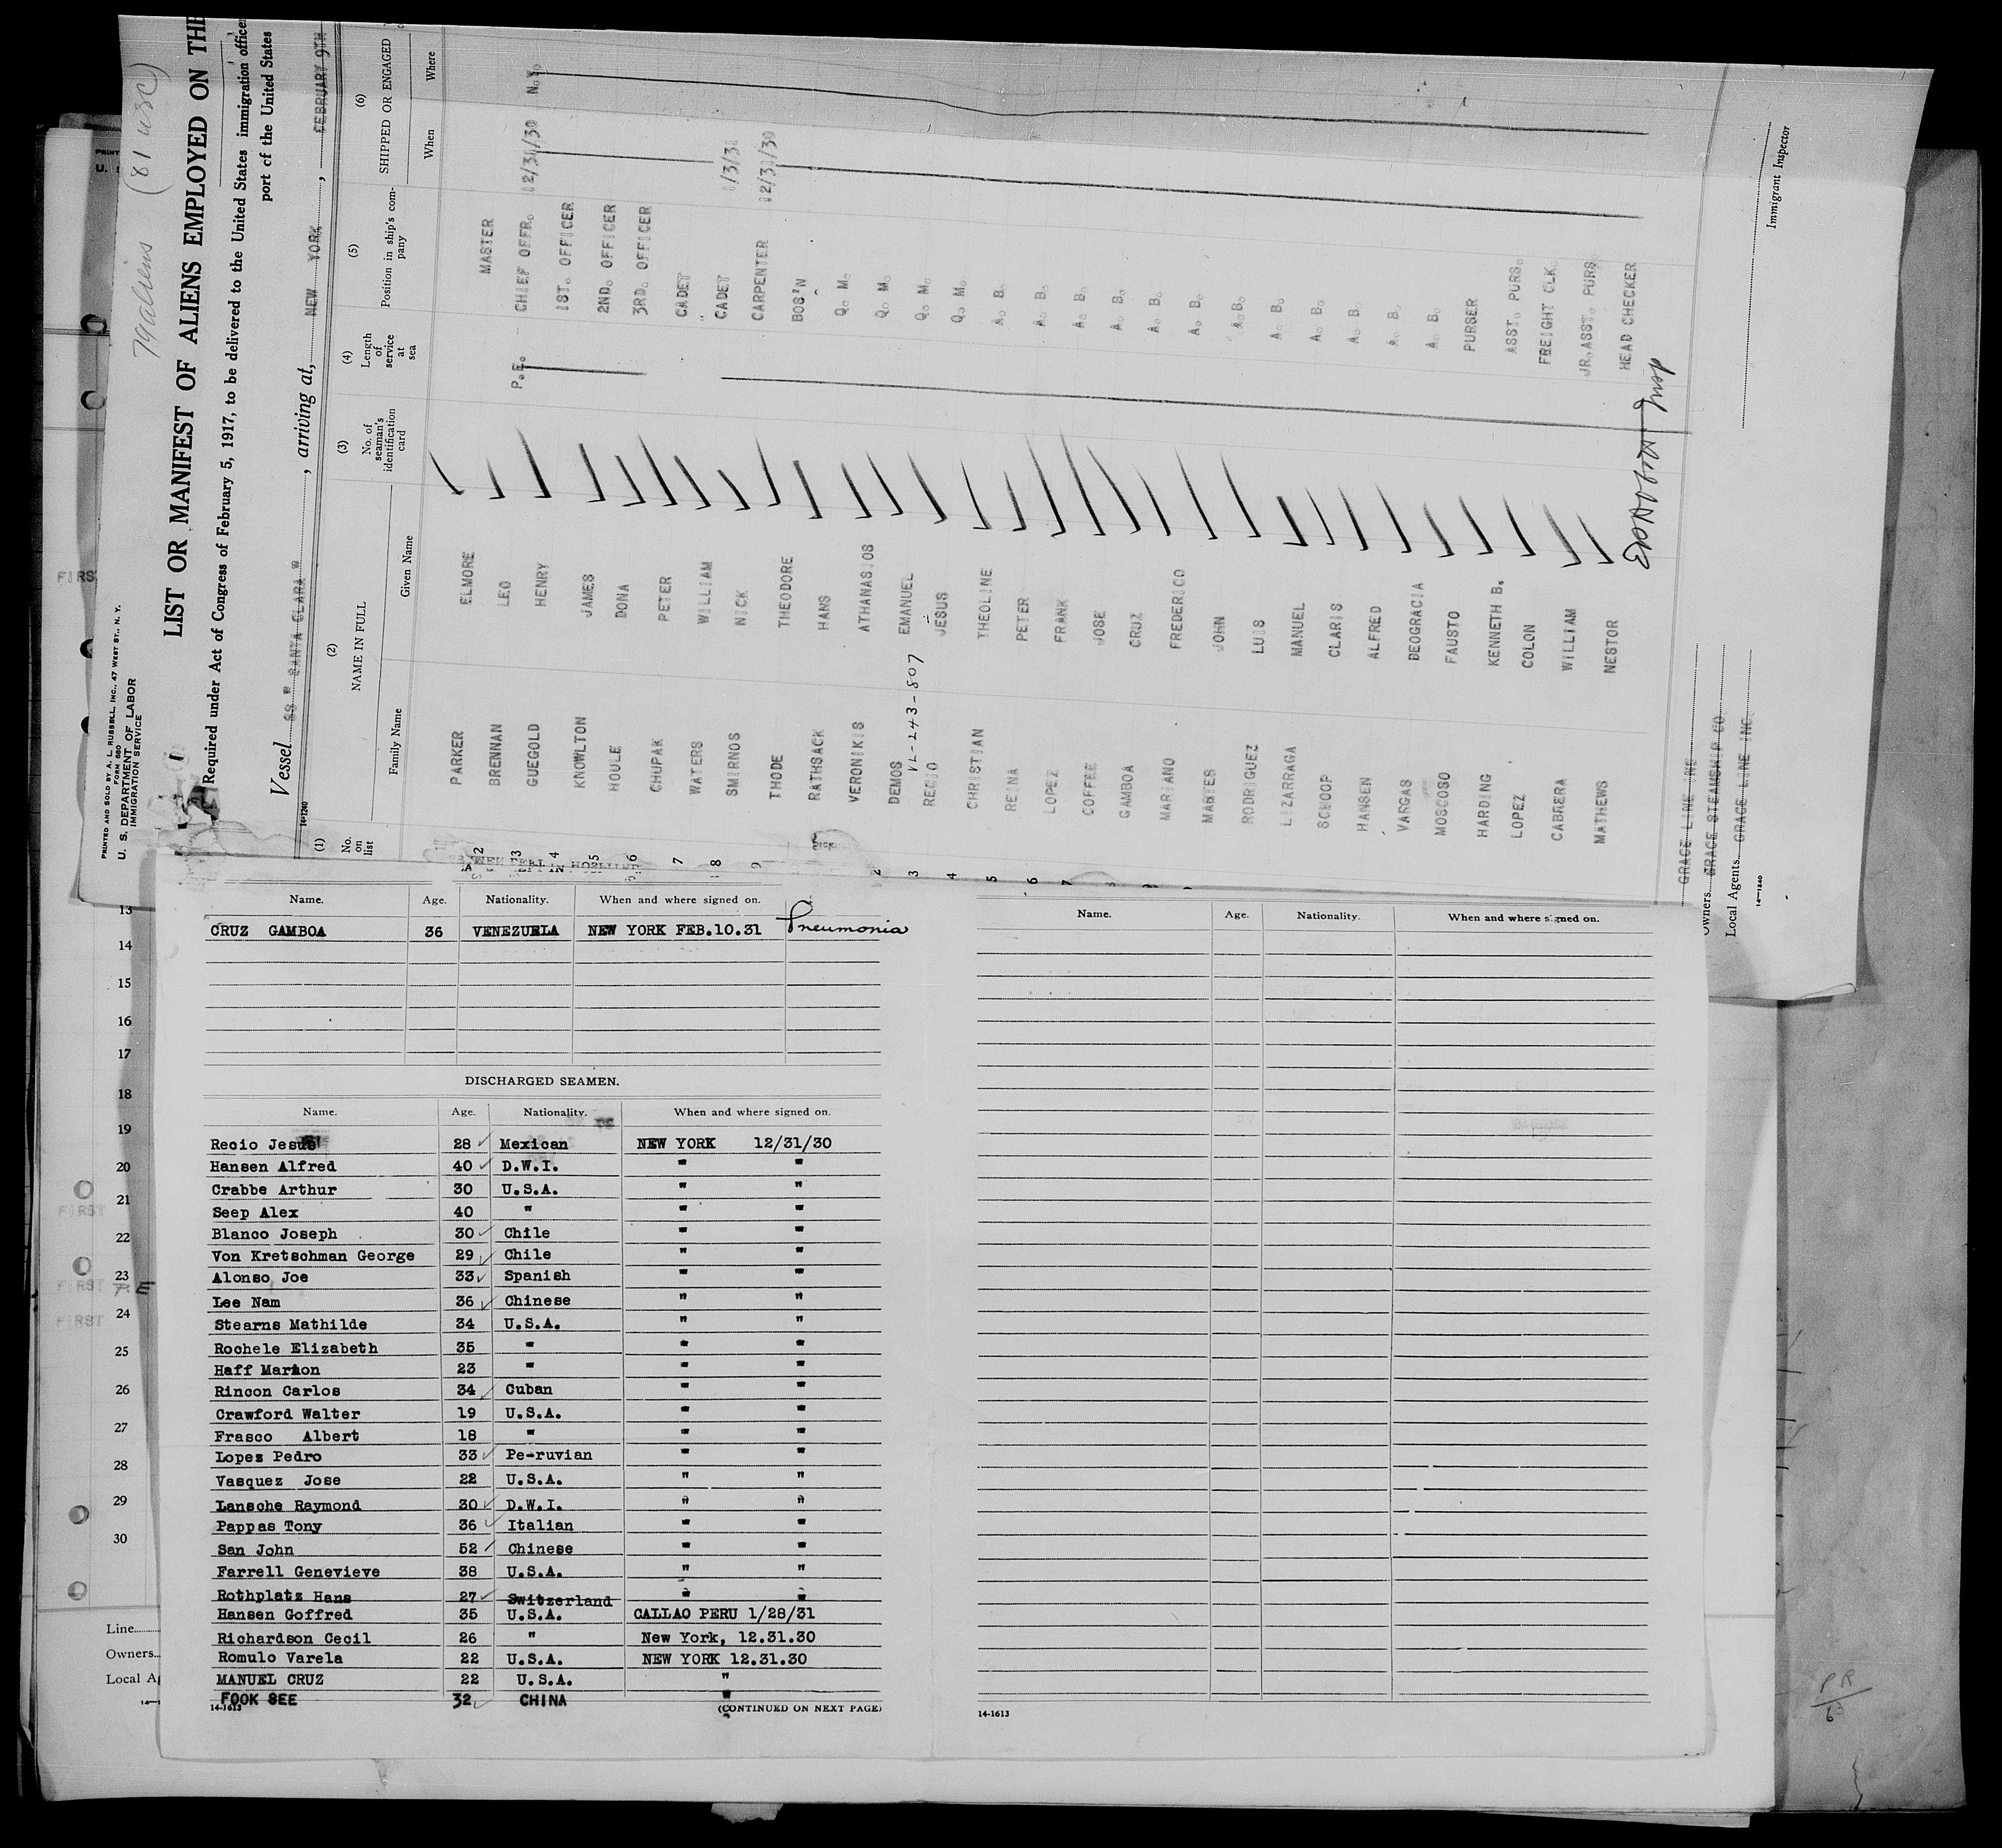 79 aliens (81 USC)
PRINTED AND SOLD BY A. L. RUSSELL, INC., 47 WEST ST., N. Y.
FORM 680
U. S. DEPARTMENT OF LABOR
IMMIGRATION SERVICE
LIST OR MANIFEST OF ALIENS EMPLOYED ON THE
Required under Act of Congress of February 5, 1917, to be delivered to the United States immigration officer
port of the United States
Vessel SS " SANTA CLARA ", arriving at, NEW YORK, FEBRUARY 9TH
14-1240
(1) (2) (3) (4) (5) (6)
No. on list NAME IN FULL No. of seaman's identification card Length of service at sea Position in ship's company SHIPPED OR ENGAGED
Family Name Given Name When Where
PARKER ELMORE MASTER
2 BRENNAN LEO P.E. CHIEF OFFR. 12/31/30 N.Y.
3 GUEGOLD HENRY 1ST. OFFICER
4 KNOWLTON JAMES 2ND. OFFICER
5 HOULE DONA 3RD. OFFICER
6 CHUPAK PETER CADET
7 WATERS WILLIAM CADET 1/3/31
8 SMIRNOS NICK CARPENTER 12/31/30
9 THODE THEODORE BOS'N
RATHSACK HANS Q. M.
VERONIKIS ATHANASIOS Q. M.
2 DEMOS EMANUEL Q. M.
VL-243-807
3 RECIO JESUS Q. M.
4 CHRISTIAN THEOLINE A. B.
5 REINA PETER A. B.
6 LOPEZ FRANK A. B.
7 COFFEE JOSE A. B.
GAMBOA CRUZ A. B.
MARIANO FREDERICO A. B.
MARTES JOHN A. B.
RODRIGUEZ LUIS A. B.
LIZARRAGA MANUEL A. B.
SCHOOP CLARIS A. B.
HANSEN ALFRED A. B.
VARGAS DEOGRACIA A. B.
MOSCOSO FAUSTO PURSER
HARDING KENNETH B. ASST. PURS.
LOPEZ COLON FREIGHT CLK.
CABRERA WILLIAM JR. ASST. PURS
MATHEWS NESTOR HEAD CHECKER
GRACE LINE INC
Owners GRACE STEAMSHIP CO.
Local Agents GRACE LINE INC.
14-1240
Immigrant Inspector
Name. Age. Nationality. When and where signed on.
CRUZ GAMBOA 36 VENEZUELA NEW YORK FEB.10.31 Pneumonia
DISCHARGED SEAMEN.
Name. Age. Nationality. When and where signed on.
Recio Jesus 28 Mexican NEW YORK 12/31/30
Hansen Alfred 40 D.W.I. " "
Crabbe Arthur 30 U.S.A. " "
Seep Alex 40 " " "
Blanco Joseph 30 Chile " "
Von Kretschman George 29 Chile " "
Alonso Joe 33 Spanish " "
Lee Nam 36 Chinese " "
Stearns Mathilde 34 U.S.A. " "
Rochele Elizabeth 35 " " "
Haff Marion 23 " " "
Rincon Carlos 34 Cuban " "
Crawford Walter 19 U.S.A. " "
Frasco Albert 18 " " "
Lopez Pedro 33 Pe-ruvian " "
Vasquez Jose 22 U.S.A. " "
Lansche Raymond 30 D.W.I. " "
Pappas Tony 36 Italian " "
San John 52 Chinese " "
Farrell Genevieve 38 U.S.A. " "
Rothplatz Hans 27 Switzerland " "
Hansen Goffred 35 U.S.A. CALLAO PERU 1/28/31
Richardson Cecil 26 " New York, 12.31.30
Romulo Varela 22 U.S.A. NEW YORK 12.31.30
MANUEL CRUZ 22 U.S.A. "
FOOK SEE 32 CHINA "
14-1613 (CONTINUED ON NEXT PAGE)
Name. Age. Nationality. When and where signed on.
14-1613
13
14
15
16
17
18
19
20
21
22
23
24
25
26
27
28
29
30
FIRST
FIRST
FIRST
FIRST
Line
Owners
Local A
PR
63